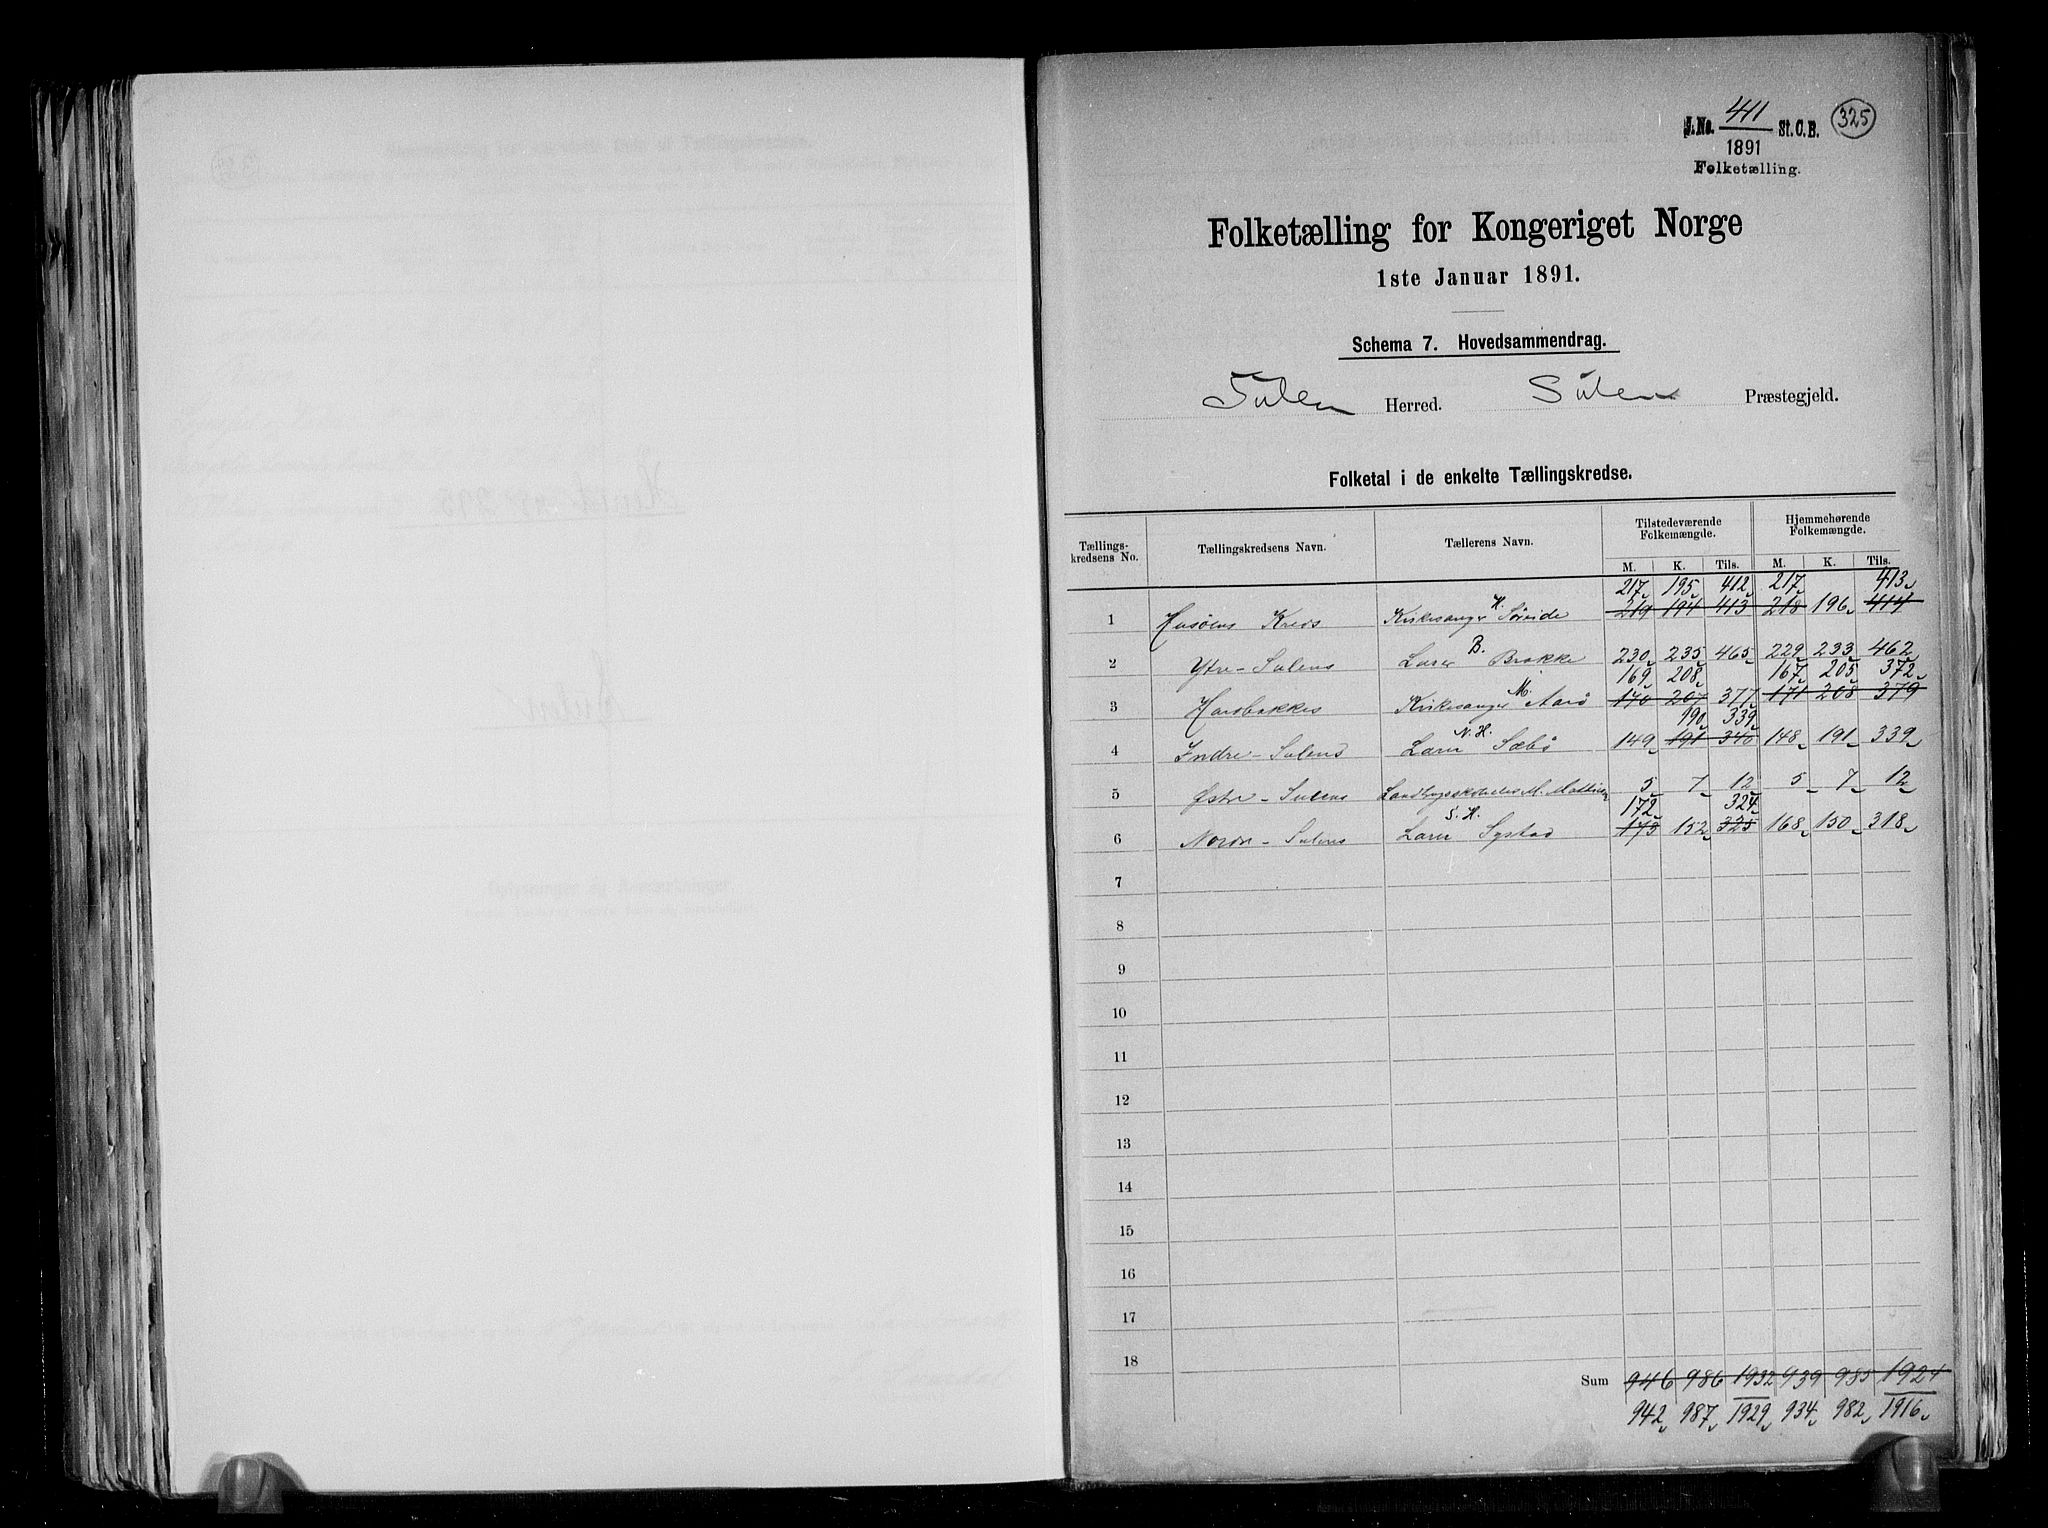 J.No. 411 St.C.B. 325
1891
Folketælling.
Folketælling for Kongeriget Norge
1ste Januar 1891.
Schema 7. Hovedsammendrag.
Sulen Herred. Sulen Præstegjeld.
Folketal i de enkelte Tællingskredse.
Tællings-kredsens No. Tællingskredsens Navn. Tællerens Navn. Tilstedeværende Folkemængde. Hjemmehørende Folkemængde.
M. K. Tils. M. K. Tils.
217 195 412 217 413
1 Husöens Kreds Kirkesanger H. Söreide 219 194 413 218 196 414
2 Ytre-Sulens Lærer B. Brække 230 235 465 229 233 462
169 208 167 205 372
3 Hardbakkes Kirkesanger M. Aarö 170 207 377 171 208 379
190 339
4 Indre-Sulens Lærer N. H. Sæbö 149 191 340 148 191 339
5 Østre-Sulens M. 5 7 12 5 7 12
172 324
6 Nordre-Sulens Lærer S. H. Systad 173 152 325 168 150 318
7
8
9
10
11
12
13
14
15
16
17
18
Sum 946 986 1932 939 985 1924
942 987 1929 934 982 1916